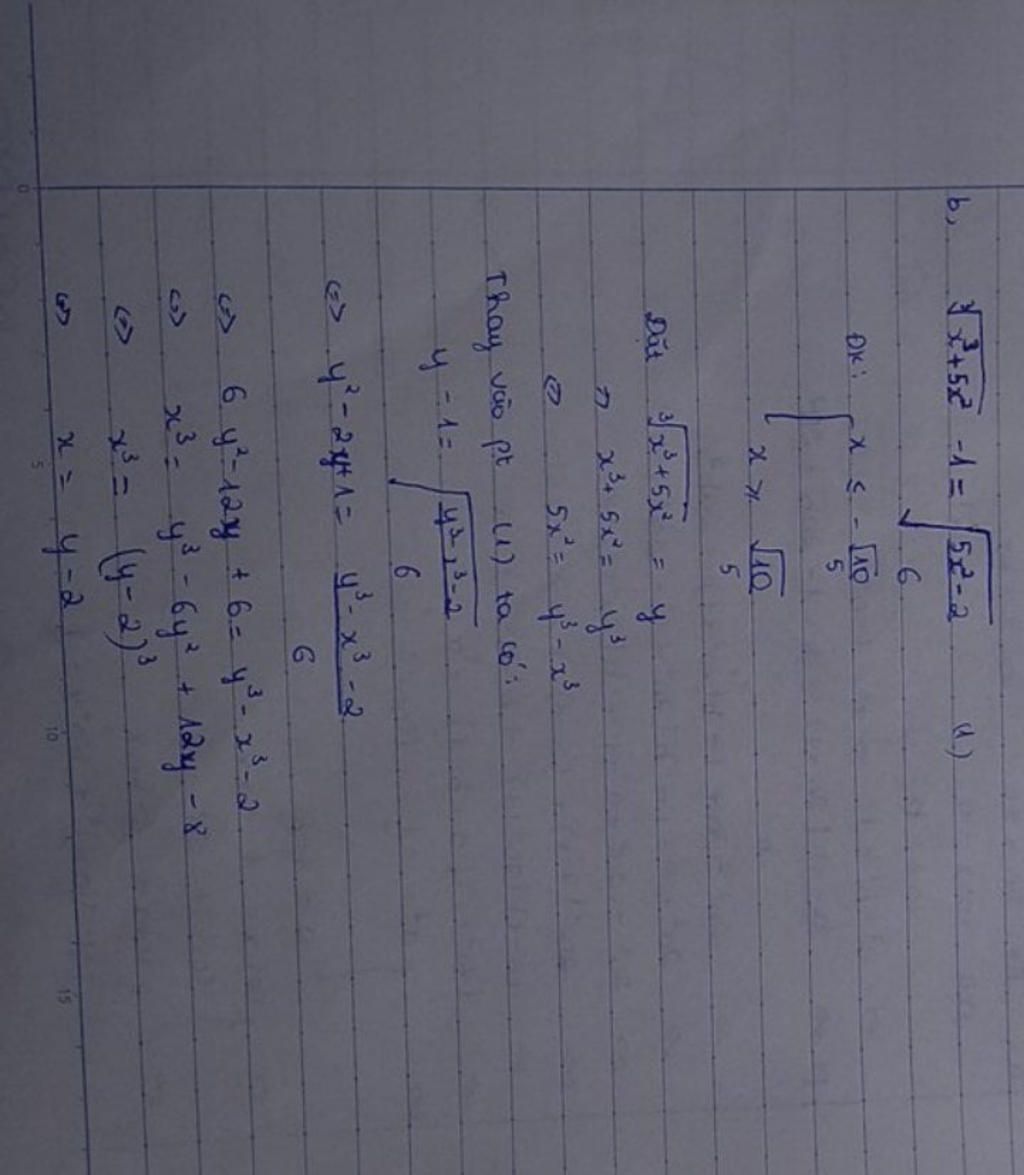 b, ∛(x³+5x²) -1 = √((5x²-2)/6) (1)
ĐK: [ x ≤ -√10/5
x ≥ √10/5
Đặt ∛(x³+5x²) = y
=> x³+5x² = y³
<=> 5x² = y³ - x³
Thay vào pt (1) ta có:
y - 1 = √((y³-x³-2)/6)
<=> y² - 2y + 1 = (y³ - x³ - 2)/6
<=> 6y² - 12y + 6 = y³ - x³ - 2
<=> x³ = y³ - 6y² + 12y - 8
<=> x³ = (y - 2)³
<=> x = y - 2
0 5 10 15